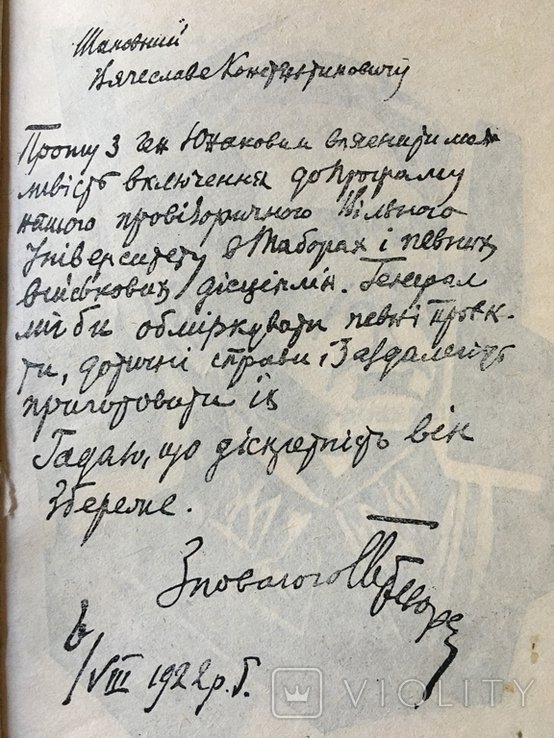 Шановний
Вячеславе Константиновичу
Прошу з ген Юнаковим вяснити мож
ливість включення до програму
нашого провізоричного Вільного
Університету в Таборах і певних
військових дісціплін. Генерал
міг би обміркувати певні проек-
ти, дотичні справи, і завдалегідь
приготовати їх
Гадаю, що діскретність він
збереже.
З повагою
6/VIII 1922 р. Б.
VIOLITY